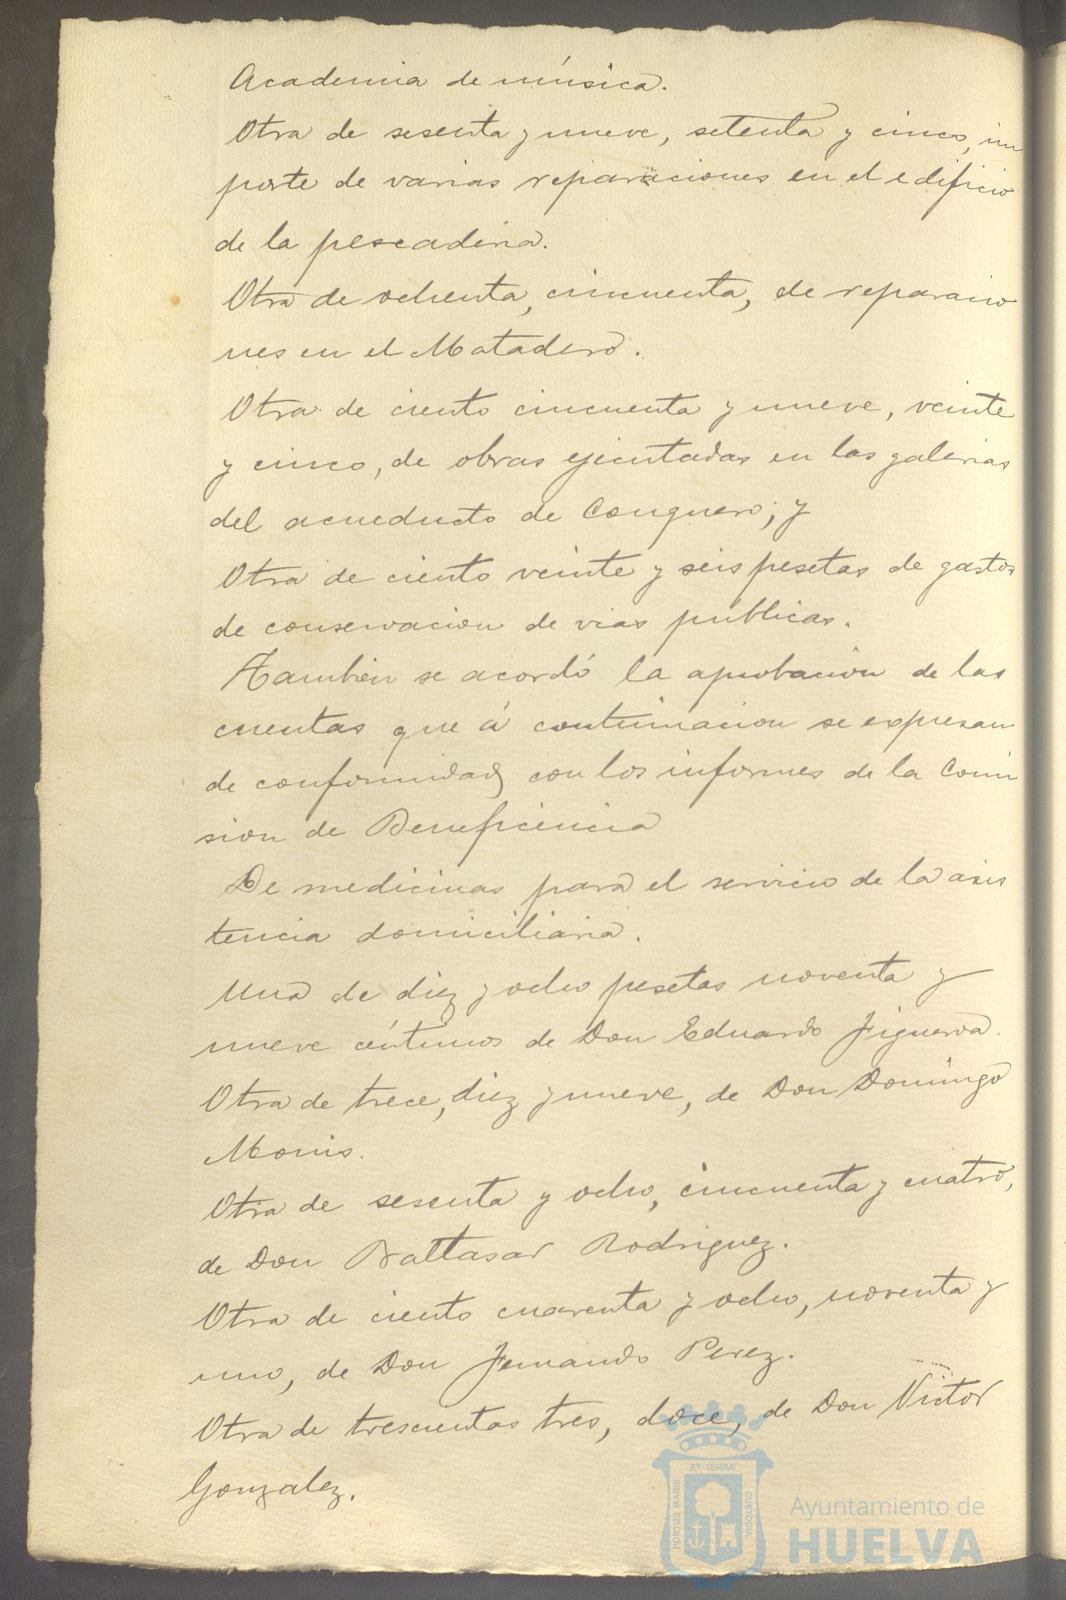 Academia de música.
Otra de sesenta y nueve, setenta y cinco, im
porte de varias reparaciones en el edificio
de la pescaderia.
Otra de ochenta, cincuenta, de reparacio
nes en el Matadero.
Otra de ciento cincuenta y nueve, veinte
y cinco, de obras ejecutadas en las galerias
del acueducto de Conquero; y
Otra de ciento veinte y seis pesetas de gastos
de conservacion de vias públicas.
Tambien se acordó la aprobacion de las
cuentas que á continuacion se expresan
de conformidad con los informes de la Comi
sion de Beneficencia
De medicinas para el servicio de la asis
tencia domiciliaria.
Una de diez y ocho pesetas noventa y
nueve céntimos de Don Eduardo Figueroa.
Otra de trece, diez y nueve, de Don Domingo
Monis.
Otra de sesenta y ocho, cincuenta y cuatro,
de Don Baltasar Rodriguez.
Otra de ciento cuarenta y ocho, noventa y
uno, de Don Fernando Perez.
Otra de trescientas tres, doce, de Don Victor
Gonzalez.
PORTUS MARIS ET TERRÆ CUSTODIA
Ayuntamiento de
HUELVA